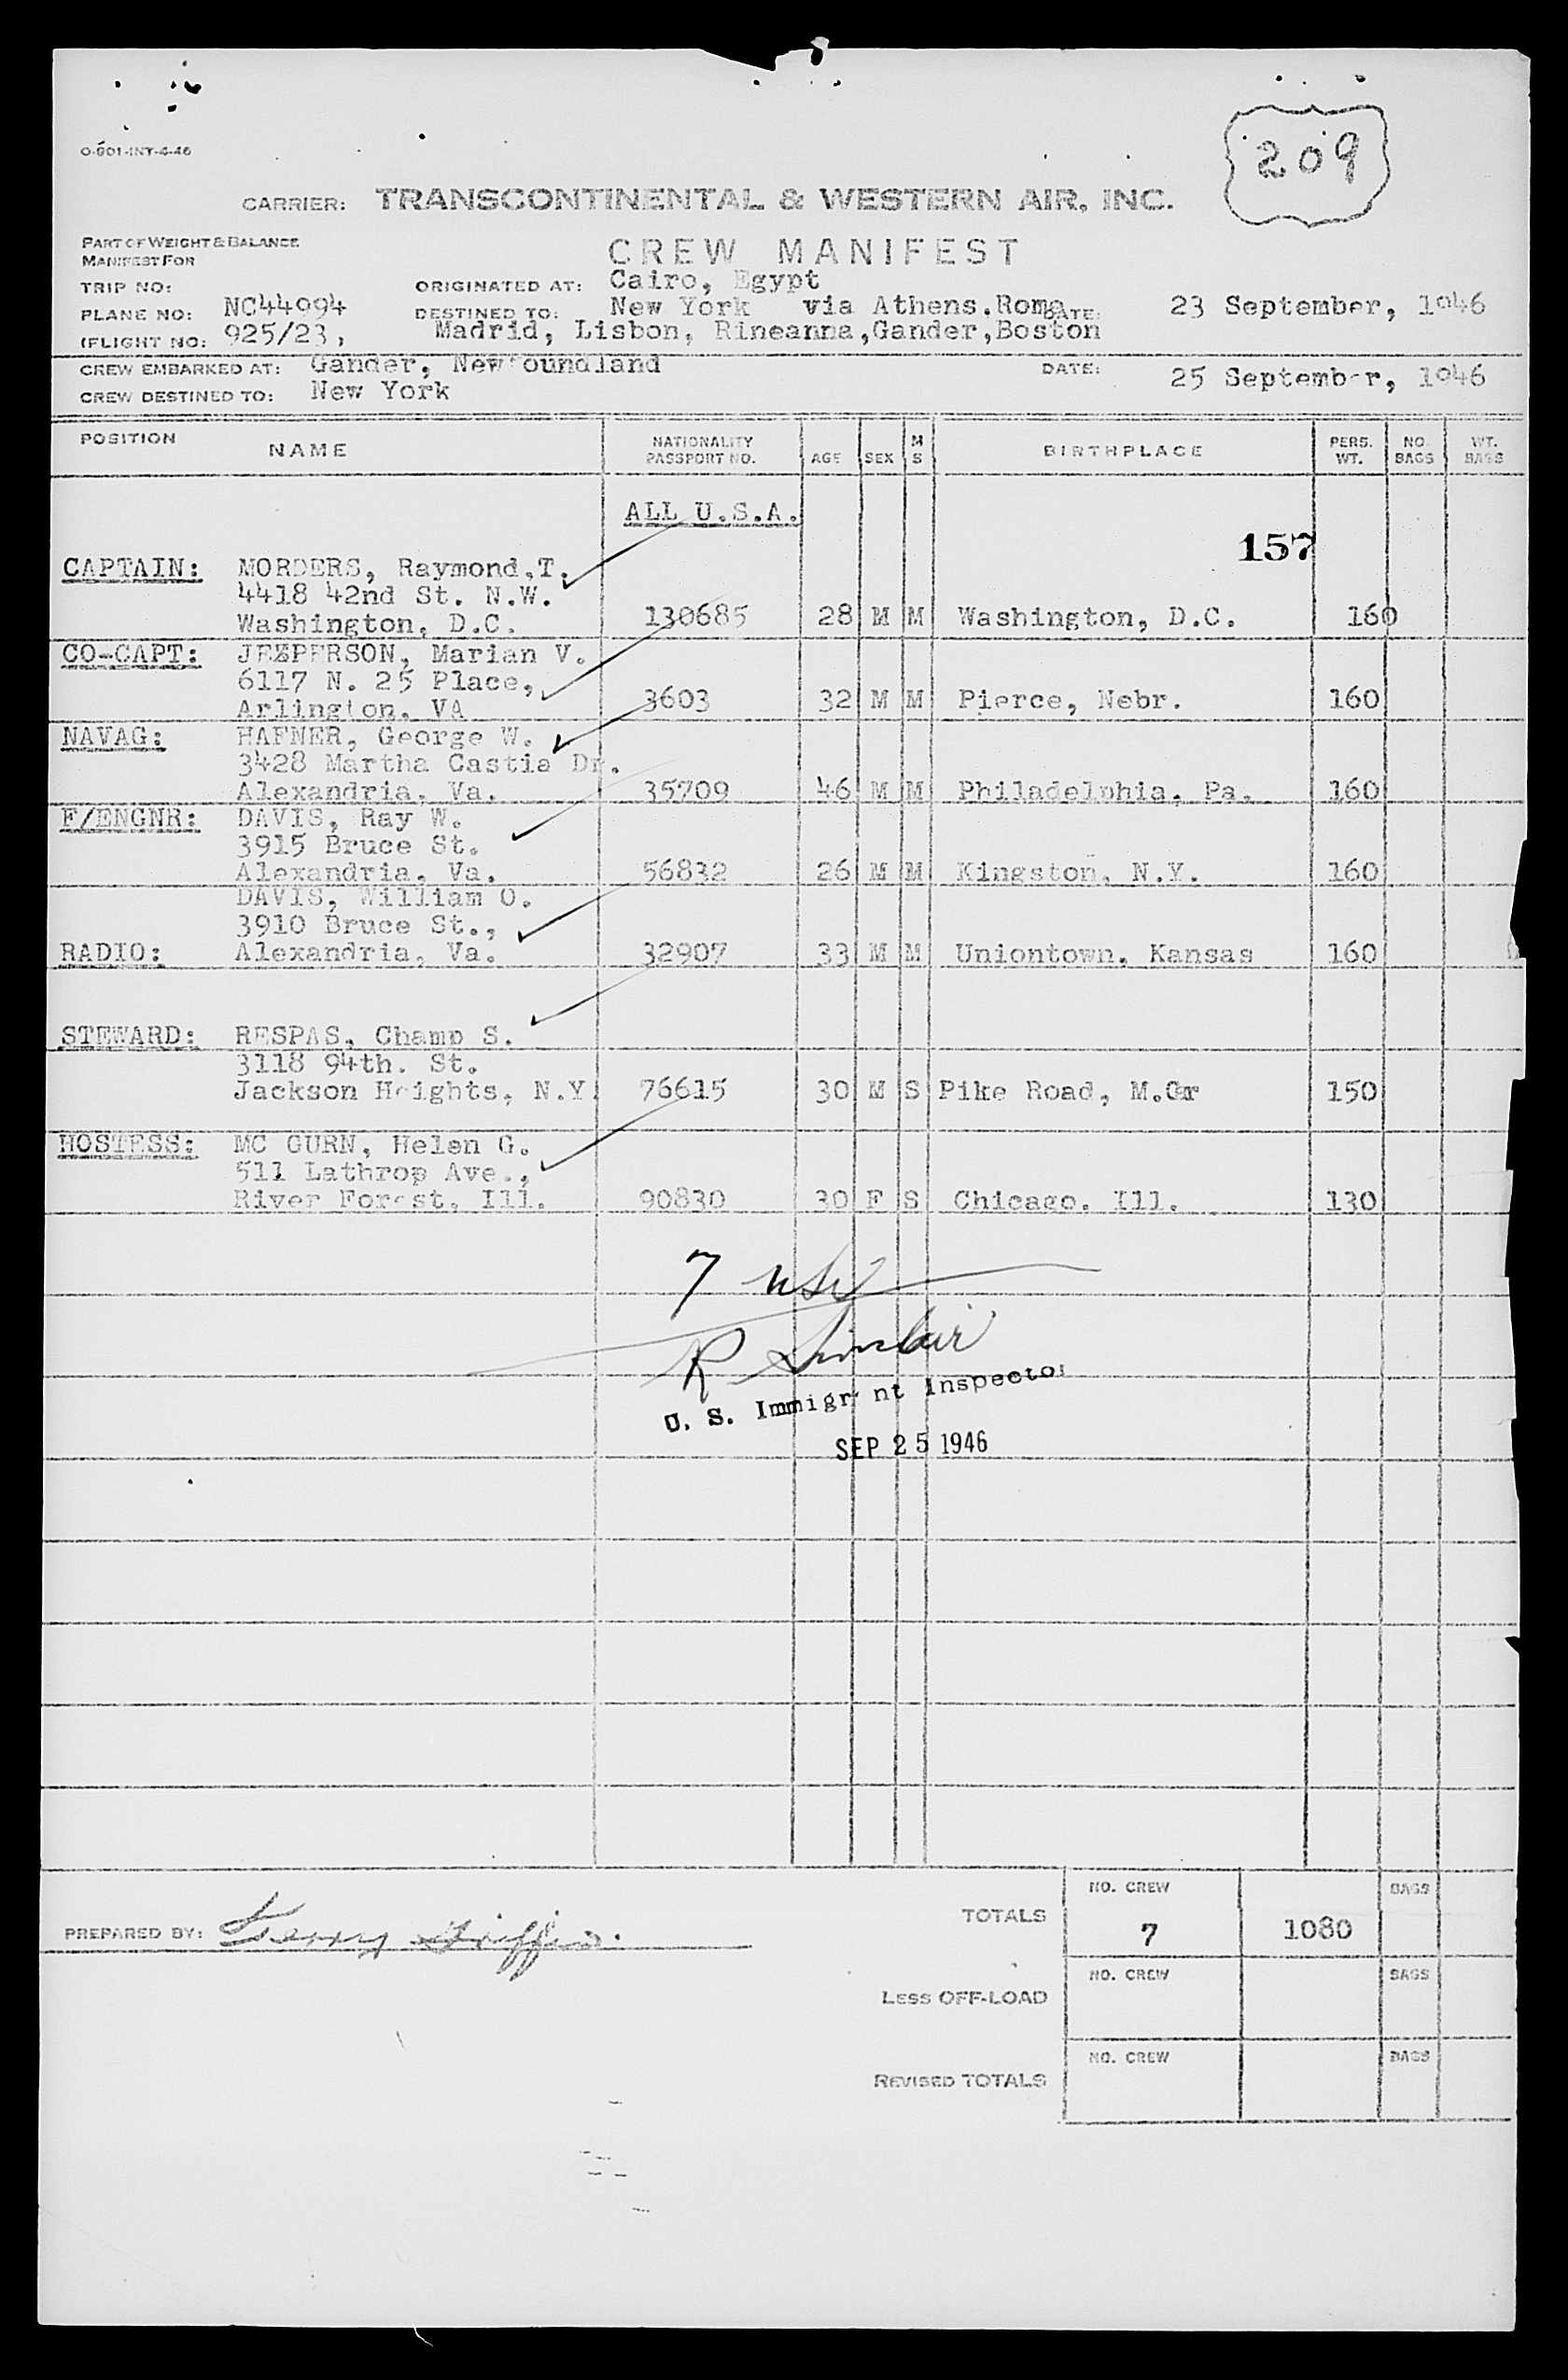 O-801-INT-4-46
209
CARRIER: TRANSCONTINENTAL & WESTERN AIR, INC.
PART OF WEIGHT & BALANCE
MANIFEST FOR
CREW MANIFEST
TRIP NO: ORIGINATED AT: Cairo, Egypt
PLANE NO: NC44994 DESTINED TO: New York via Athens.Rome DATE: 23 September, 1946
(FLIGHT NO: 925/23, Madrid, Lisbon, Rineanna,Gander,Boston
CREW EMBARKED AT: Gander, Newfoundland DATE: 25 September, 1946
CREW DESTINED TO: New York
POSITION NAME NATIONALITY PASSPORT NO. AGE SEX M S BIRTHPLACE PERS. WT. NO. BAGS WT. BAGS
ALL U.S.A.
157
CAPTAIN: MORDERS, Raymond.T.
4418 42nd St. N.W.
Washington, D.C. 130685 28 M M Washington, D.C. 160
CO-CAPT: JEPPERSON, Marian V.
6117 N. 25 Place,
Arlington. VA 3603 32 M M Pierce, Nebr. 160
NAVAG: HAFNER, George W.
3428 Martha Castis Dr.
Alexandria, Va. 35709 46 M M Philadelphia, Pa. 160
F/ENGNR: DAVIS, Ray W.
3915 Bruce St.
Alexandria, Va. 56832 26 M M Kingston, N.Y. 160
DAVIS, William O.
3910 Bruce St.,
RADIO: Alexandria, Va. 32907 33 M M Uniontown, Kansas 160
STEWARD: RESPAS, Champ S.
3118 94th. St.
Jackson Heights, N.Y. 76615 30 M S Pike Road, M.Car 150
HOSTESS: MC GURN, Helen G.
511 Lathrop Ave.,
River Forest, Ill. 90830 30 F S Chicago, Ill. 130
7
R Sinclair
U. S. Immigrant Inspector
SEP 25 1946
PREPARED BY: Gerry Griffin.
TOTALS NO. CREW 7 1080 BAGS
LESS OFF-LOAD NO. CREW BAGS
REVISED TOTALS NO. CREW BAGS